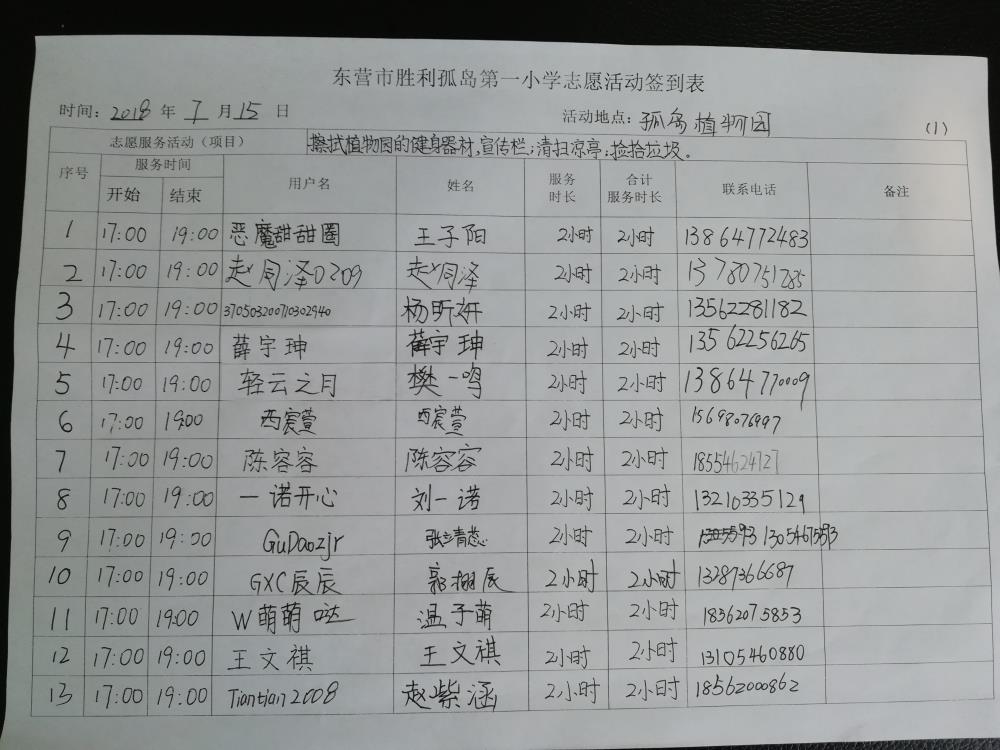 东营市胜利孤岛第一小学志愿活动签到表
时间：2018 年 7 月 15 日 活动地点：孤岛植物园 (1)
志愿服务活动（项目） 擦拭植物园的健身器材，宣传栏；清扫凉亭；捡拾垃圾。
序号 服务时间 用户名 姓名 服务时长 合计服务时长 联系电话 备注
开始 结束
1 17:00 19:00 恶魔甜甜圈 王子阳 2小时 2小时 13864772483
2 17:00 19:00 赵同泽0209 赵同泽 2小时 2小时 13780751785
3 17:00 19:00 370503200710302940 杨昕妍 2小时 2小时 13562281182
4 17:00 19:00 薛宇珅 薛宇珅 2小时 2小时 13562256265
5 17:00 19:00 轻云之月 樊一鸣 2小时 2小时 13864770009
6 17:00 19:00 西宸萱 西宸萱 2小时 2小时 15698076997
7 17:00 19:00 陈容容 陈容容 2小时 2小时 18554624727
8 17:00 19:00 一诺开心 刘一诺 2小时 2小时 13210335129
9 17:00 19:00 GuDaozjr 2小时 2小时
10 17:00 19:00 GXC辰辰 2小时 2小时 13287366687
11 17:00 19:00 W萌萌哒 温子萌 2小时 2小时 18362075853
12 17:00 19:00 王文祺 王文祺 2小时 2小时 13105460880
13 17:00 19:00 Tiantian2008 赵紫涵 2小时 2小时 18562000862